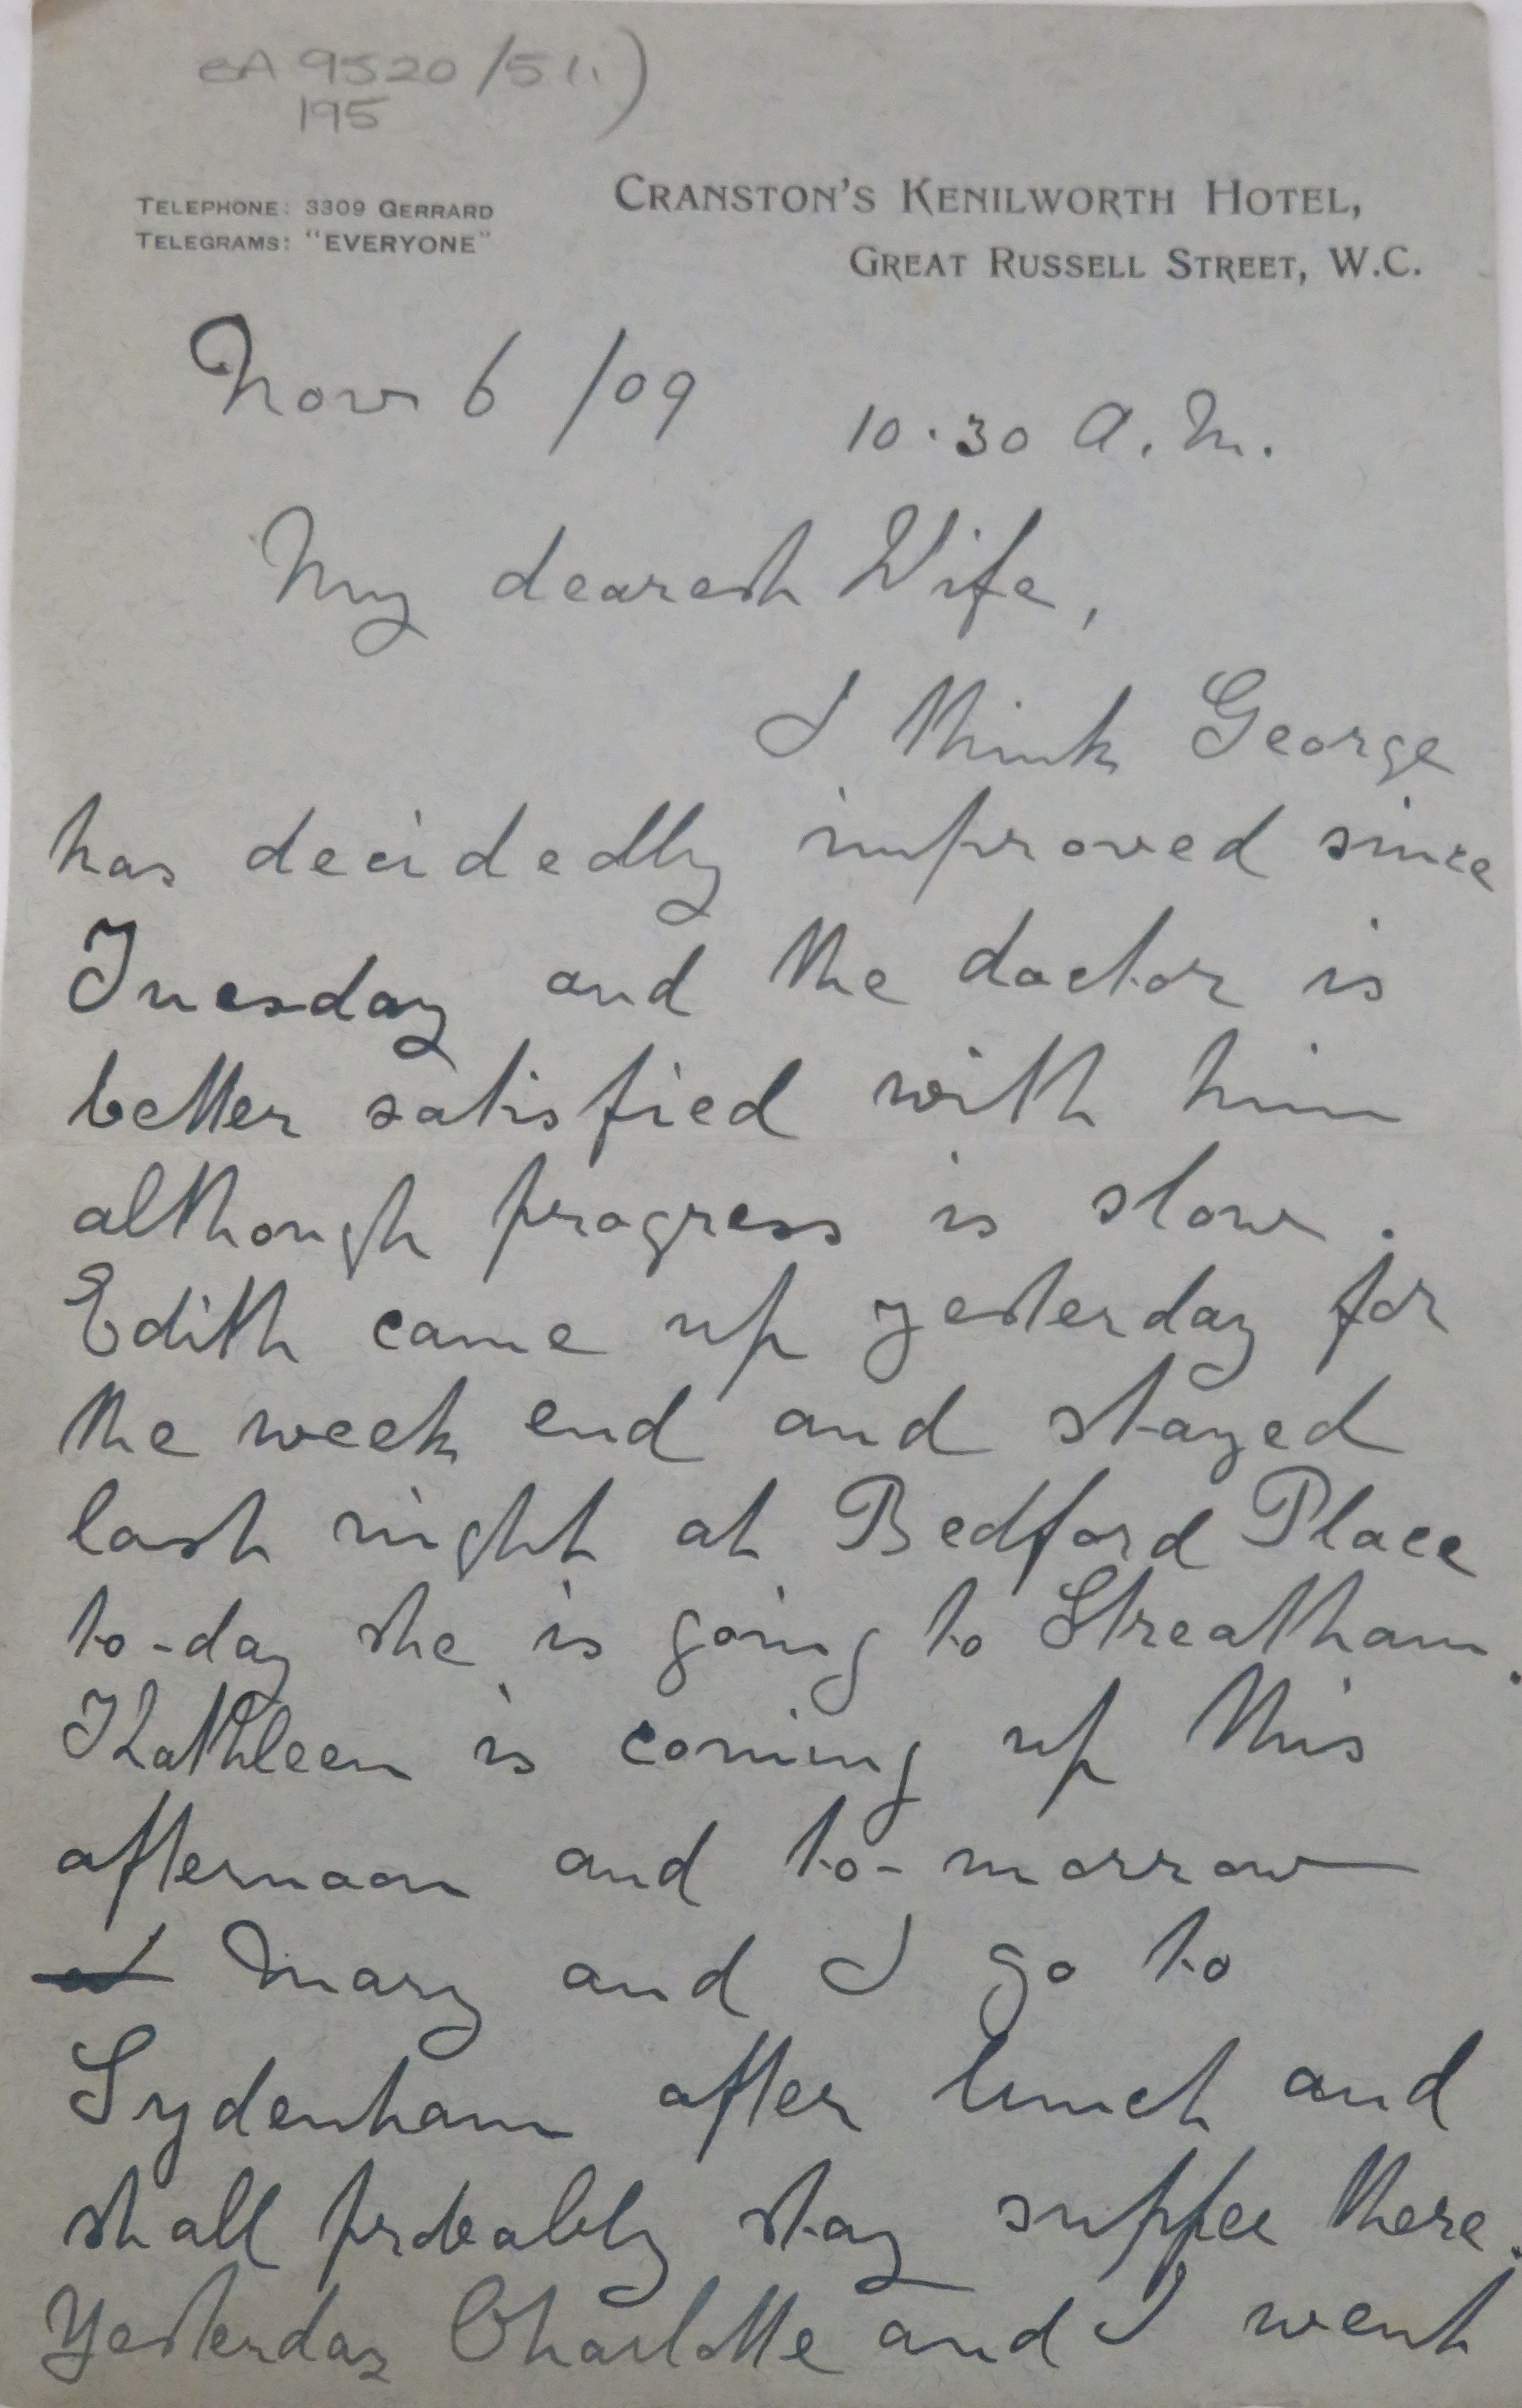 eA 9520/5(1.)
195
TELEPHONE: 3309 GERRARD
TELEGRAMS: "EVERYONE"
CRANSTON'S KENILWORTH HOTEL,
GREAT RUSSELL STREET, W.C.
Nov 6 /09 10.30 A.M.
My dearest Wife,
I think George
has decidedly improved since
Tuesday and the doctor is
better satisfied with him
although progress is slow.
Edith came up yesterday for
the week end and stayed
last night at Bedford Place
to-day she is going to Streatham.
Kathleen is coming up this
afternoon and to-morrow
Mary and I go to
Sydenham after lunch and
shall probably stay supper there.
Yesterday Charlotte and I went